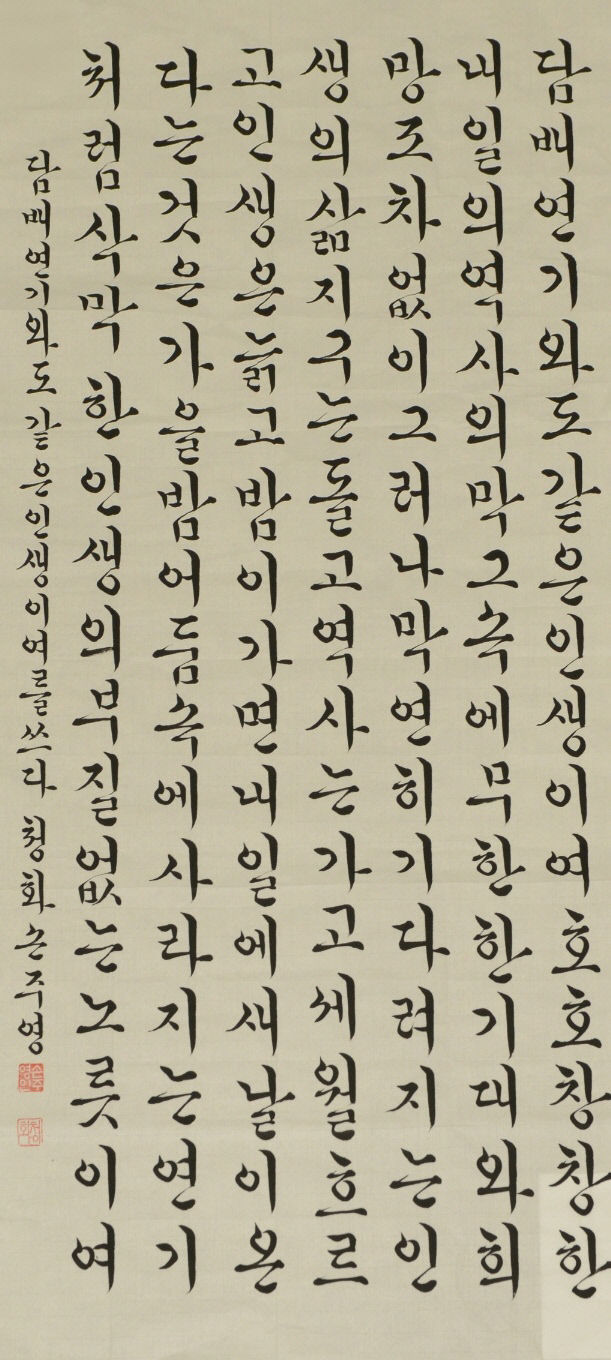 담배연기와도같은인생이여호호창창한
내일의역사의막그속에무한한기대와희
망조차없이그러나막연히기다려지는인
생의삶지구는돌고역사는가고세월흐르
고인생은늙고밤이가면내일에새날이온
다는것은가을밤어둠속에사라지는연기
처럼삭막한인생의부질없는노릇이여
담배연기와도같은인생이여를쓰다 청화손주영